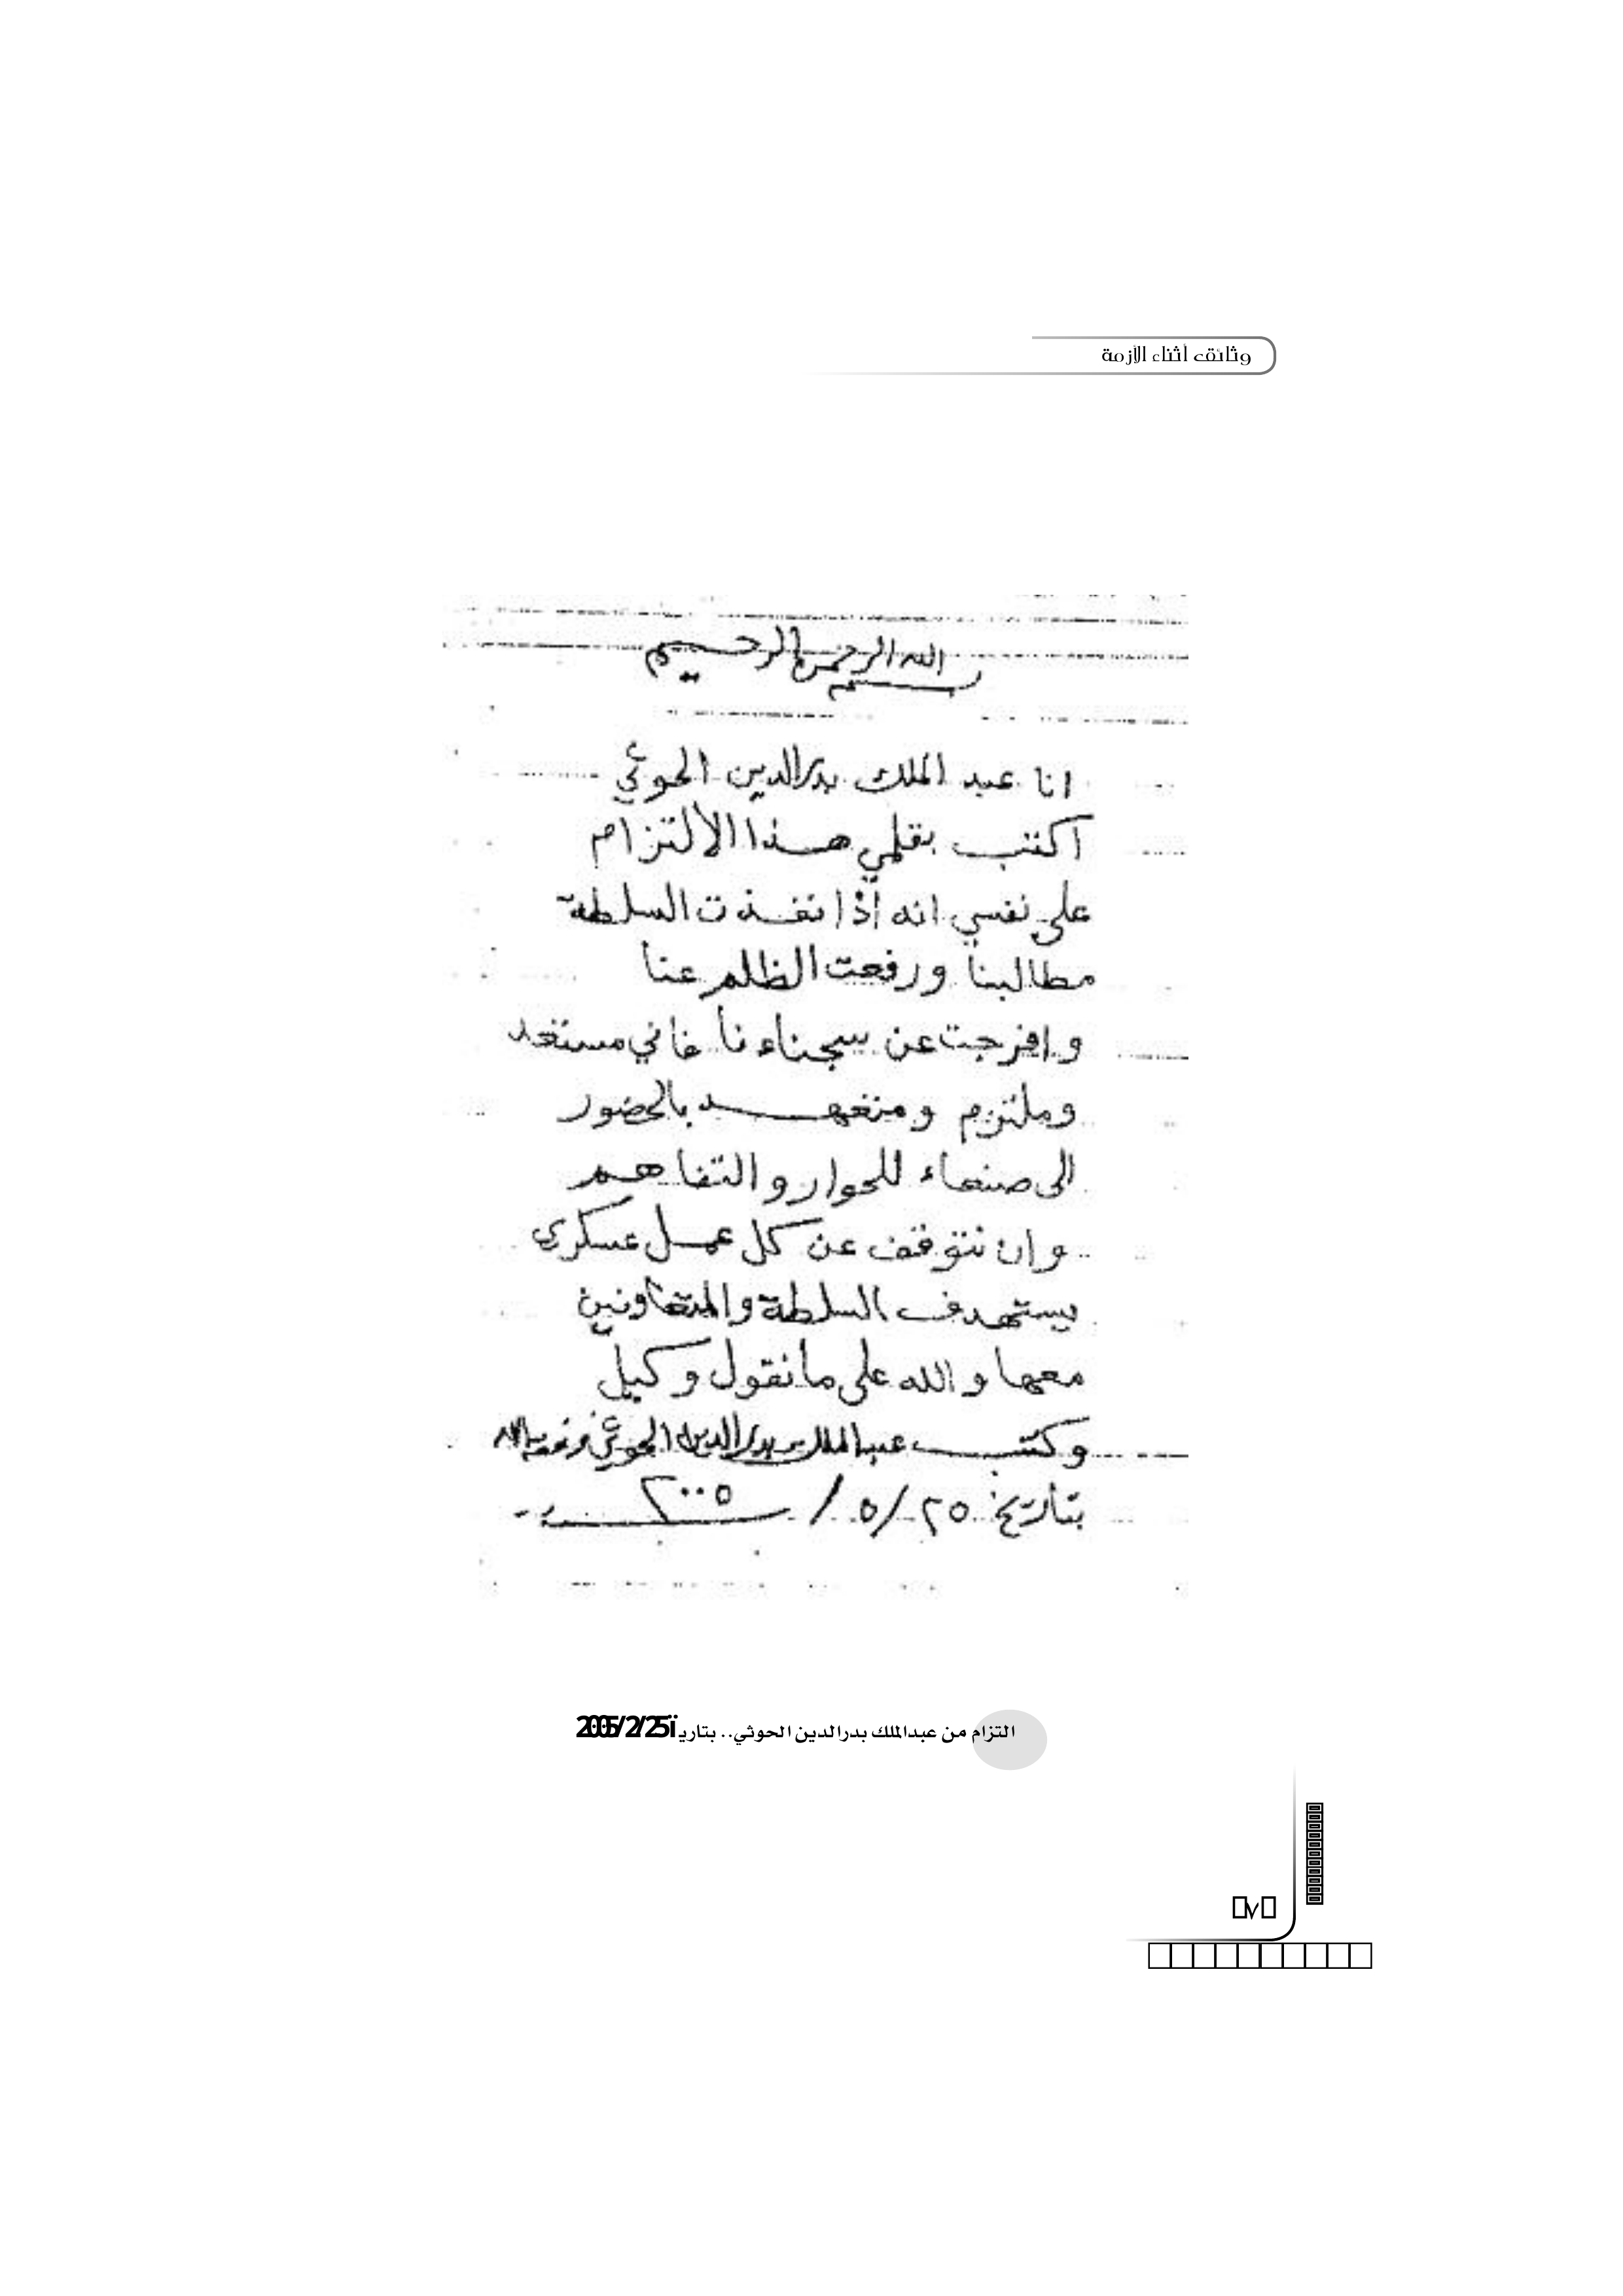 وثائق أثناء الأزمة
بسم الله الرحمن الرحيم
انا عبد الملك بدر الدين الحوثي
اكتب بقلمي هذا الالتزام
على نفسي انه اذا نفذت السلطة
مطالبنا ورفعت الظلم عنا
وافرجت عن سجناءنا فاني مستعد
وملتزم ومتعهد بالحضور
الى صنعاء للحوار والتفاهم
وان نتوقف عن كل عمل عسكري
يستهدف السلطة والمتعاونين
معها والله على مانقول وكيل
وكتب عبدالملك بدرالدين الحوثي وفقه الله
بتاريخ ٢٥/٥/٢٠٠٥
التزام من عبدالملك بدرالدين الحوثي.. بتاريـ 2005/2/25